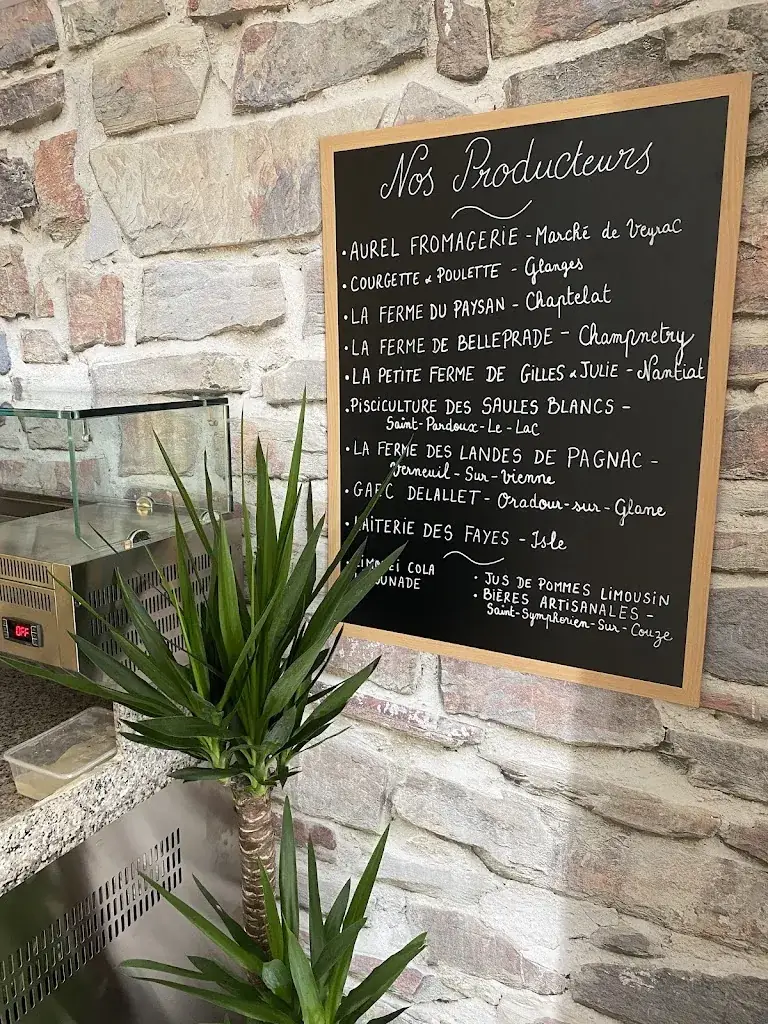 Nos Producteurs
• AUREL FROMAGERIE - Marché de Veyrac
• COURGETTE & POULETTE - Glanges
• LA FERME DU PAYSAN - Chaptelat
• LA FERME DE BELLEPRADE - Champnetry
• LA PETITE FERME DE GILLES & JULIE - Nantiat
• PISCICULTURE DES SAULES BLANCS -
Saint-Pardoux-Le-Lac
• LA FERME DES LANDES DE PAGNAC -
Verneuil-Sur-Vienne
• GAEC DELALLET - Oradour-sur-Glane
LAITERIE DES FAYES - Isle
COLA
• JUS DE POMMES LIMOUSIN
• BIÈRES ARTISANALES -
Saint-Symphorien-Sur-Couze
OFF